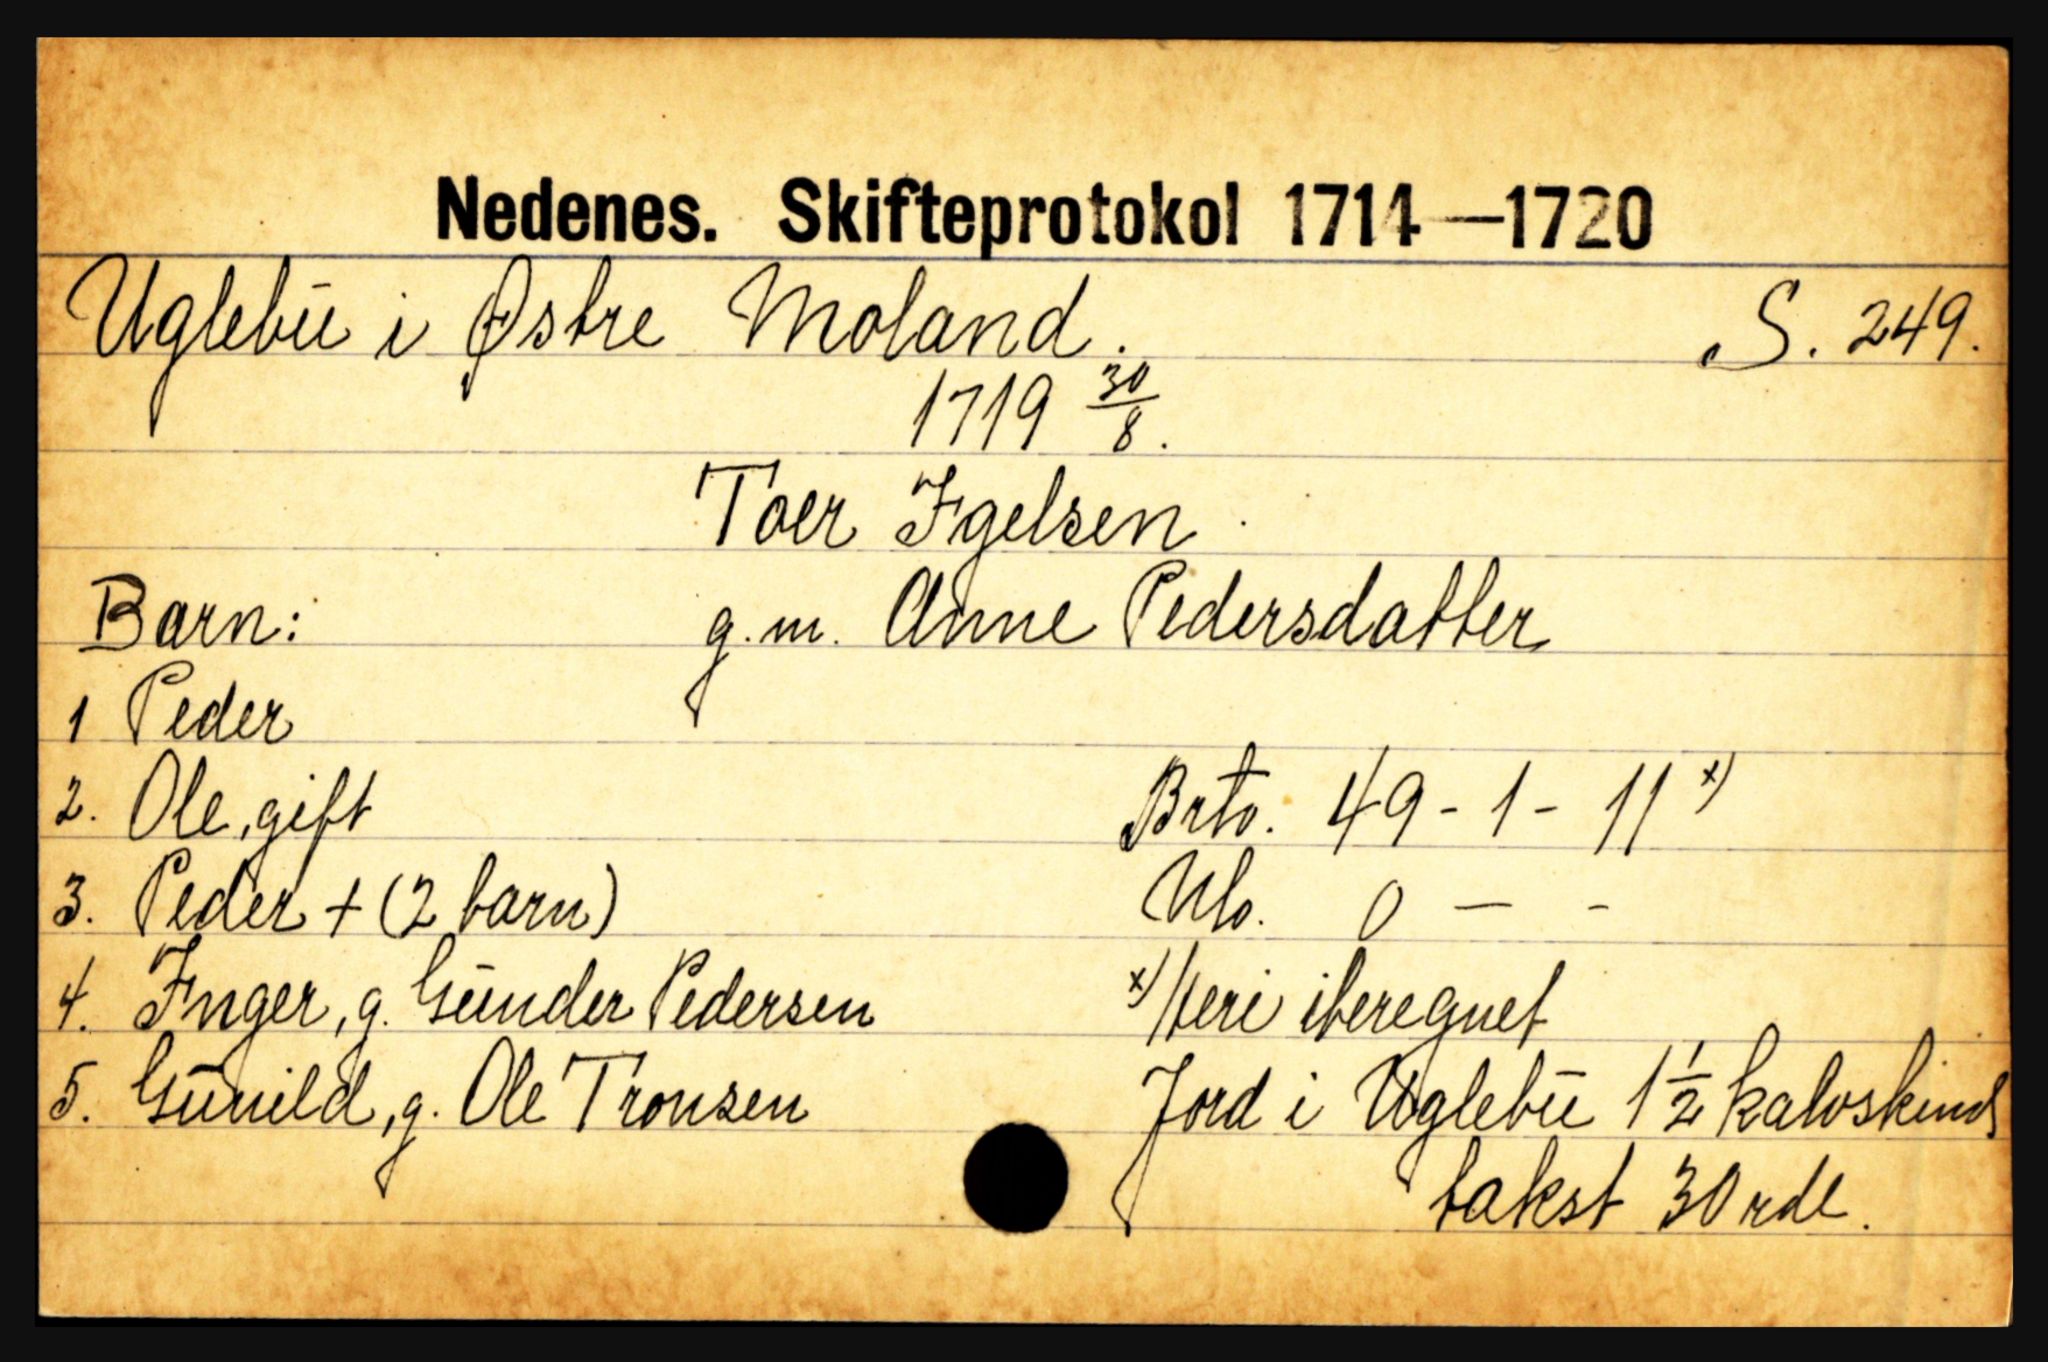 Nedenes. Skifteprotokol 1714—1720
Uglebū i Østre Moland. S. 249.
1719 30/8.
Toer Igelsen.
Barn: g.m. Anne Pedersdatter
1 Peder
2. Ole, gift
Brto. 49 - 1 - 11 x)
3. Peder + (2 barn)
Nto. 0 — -
4. Inger, g. Gūnder Pedersen
x) Heri iberegnet
5. Gūnild, g. Ole Tronsen
Jord i Uglebū 1 1/2 kalvskind
takst 30 rdl.